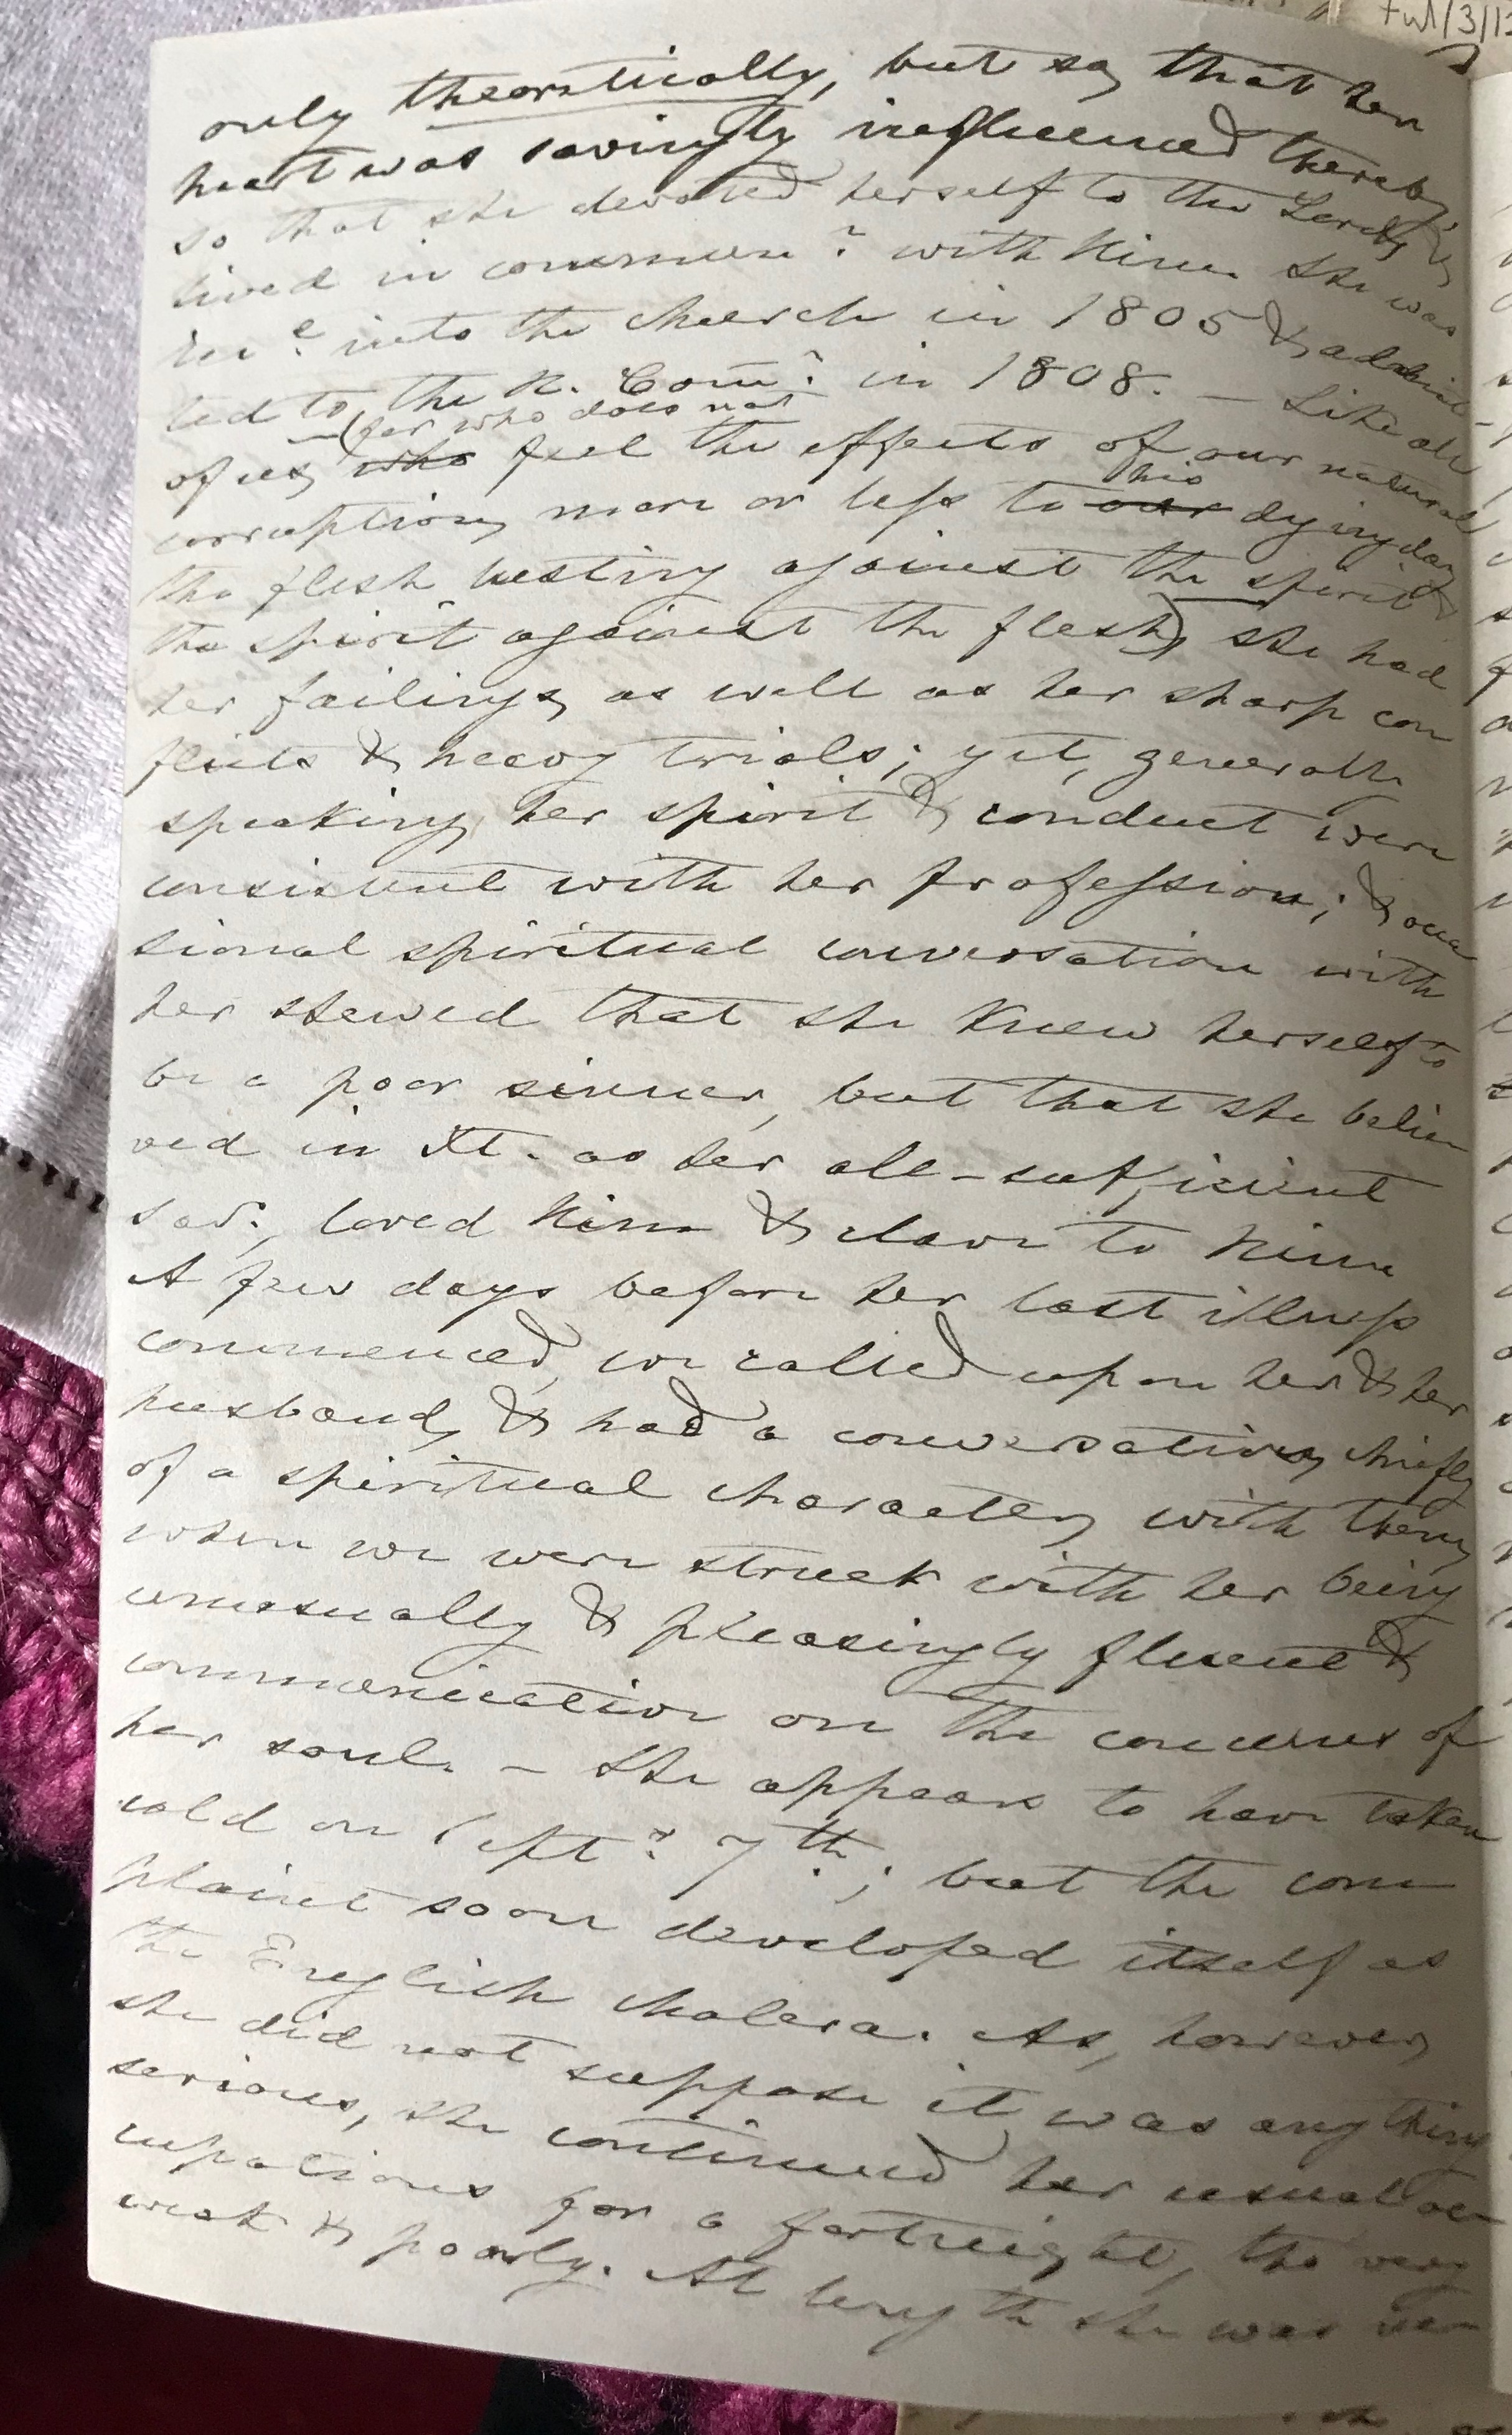 Ful/3/13
only theoretically, but so, that her
heart was savingly influenced thereby,
so that she devoted herself to the Lord, &
lived in commun.n with Him. She was
rec.d into the church in 1805 & admit-
ted to the H. Com.n in 1808. — Like all
of us, (for who does not who feel the effects of our natural
corruption, more or less to his our dying day,
the flesh lusting against the spirit &
the spirit against the flesh), she had
her failings, as well as her sharp con
flicts & heavy trials; yet, generally
speaking, her spirit & conduct were
consistent with her profession; & occa
sional spiritual conversation with
her shewed that she knew herself to
be a poor sinner, but that she belie
ved in Xt. as her all-sufficient
Sav.r, loved Him & clave to Him.
A few days before her last illness
commenced, we called upon her & her
husband, & had a conversation, chiefly
of a spiritual character, with them,
when we were struck with her being
unusually & pleasingly fluent &
communicative on the concerns of
her soul. — She appears to have taken
cold on Sept.r 7th.; but the com
plaint soon developed itself as
the English cholera. As, however,
she did not suppose it was any thing
serious, she continued her usual oc
cupations for a fortnight, tho very
weak & poorly. At length she was